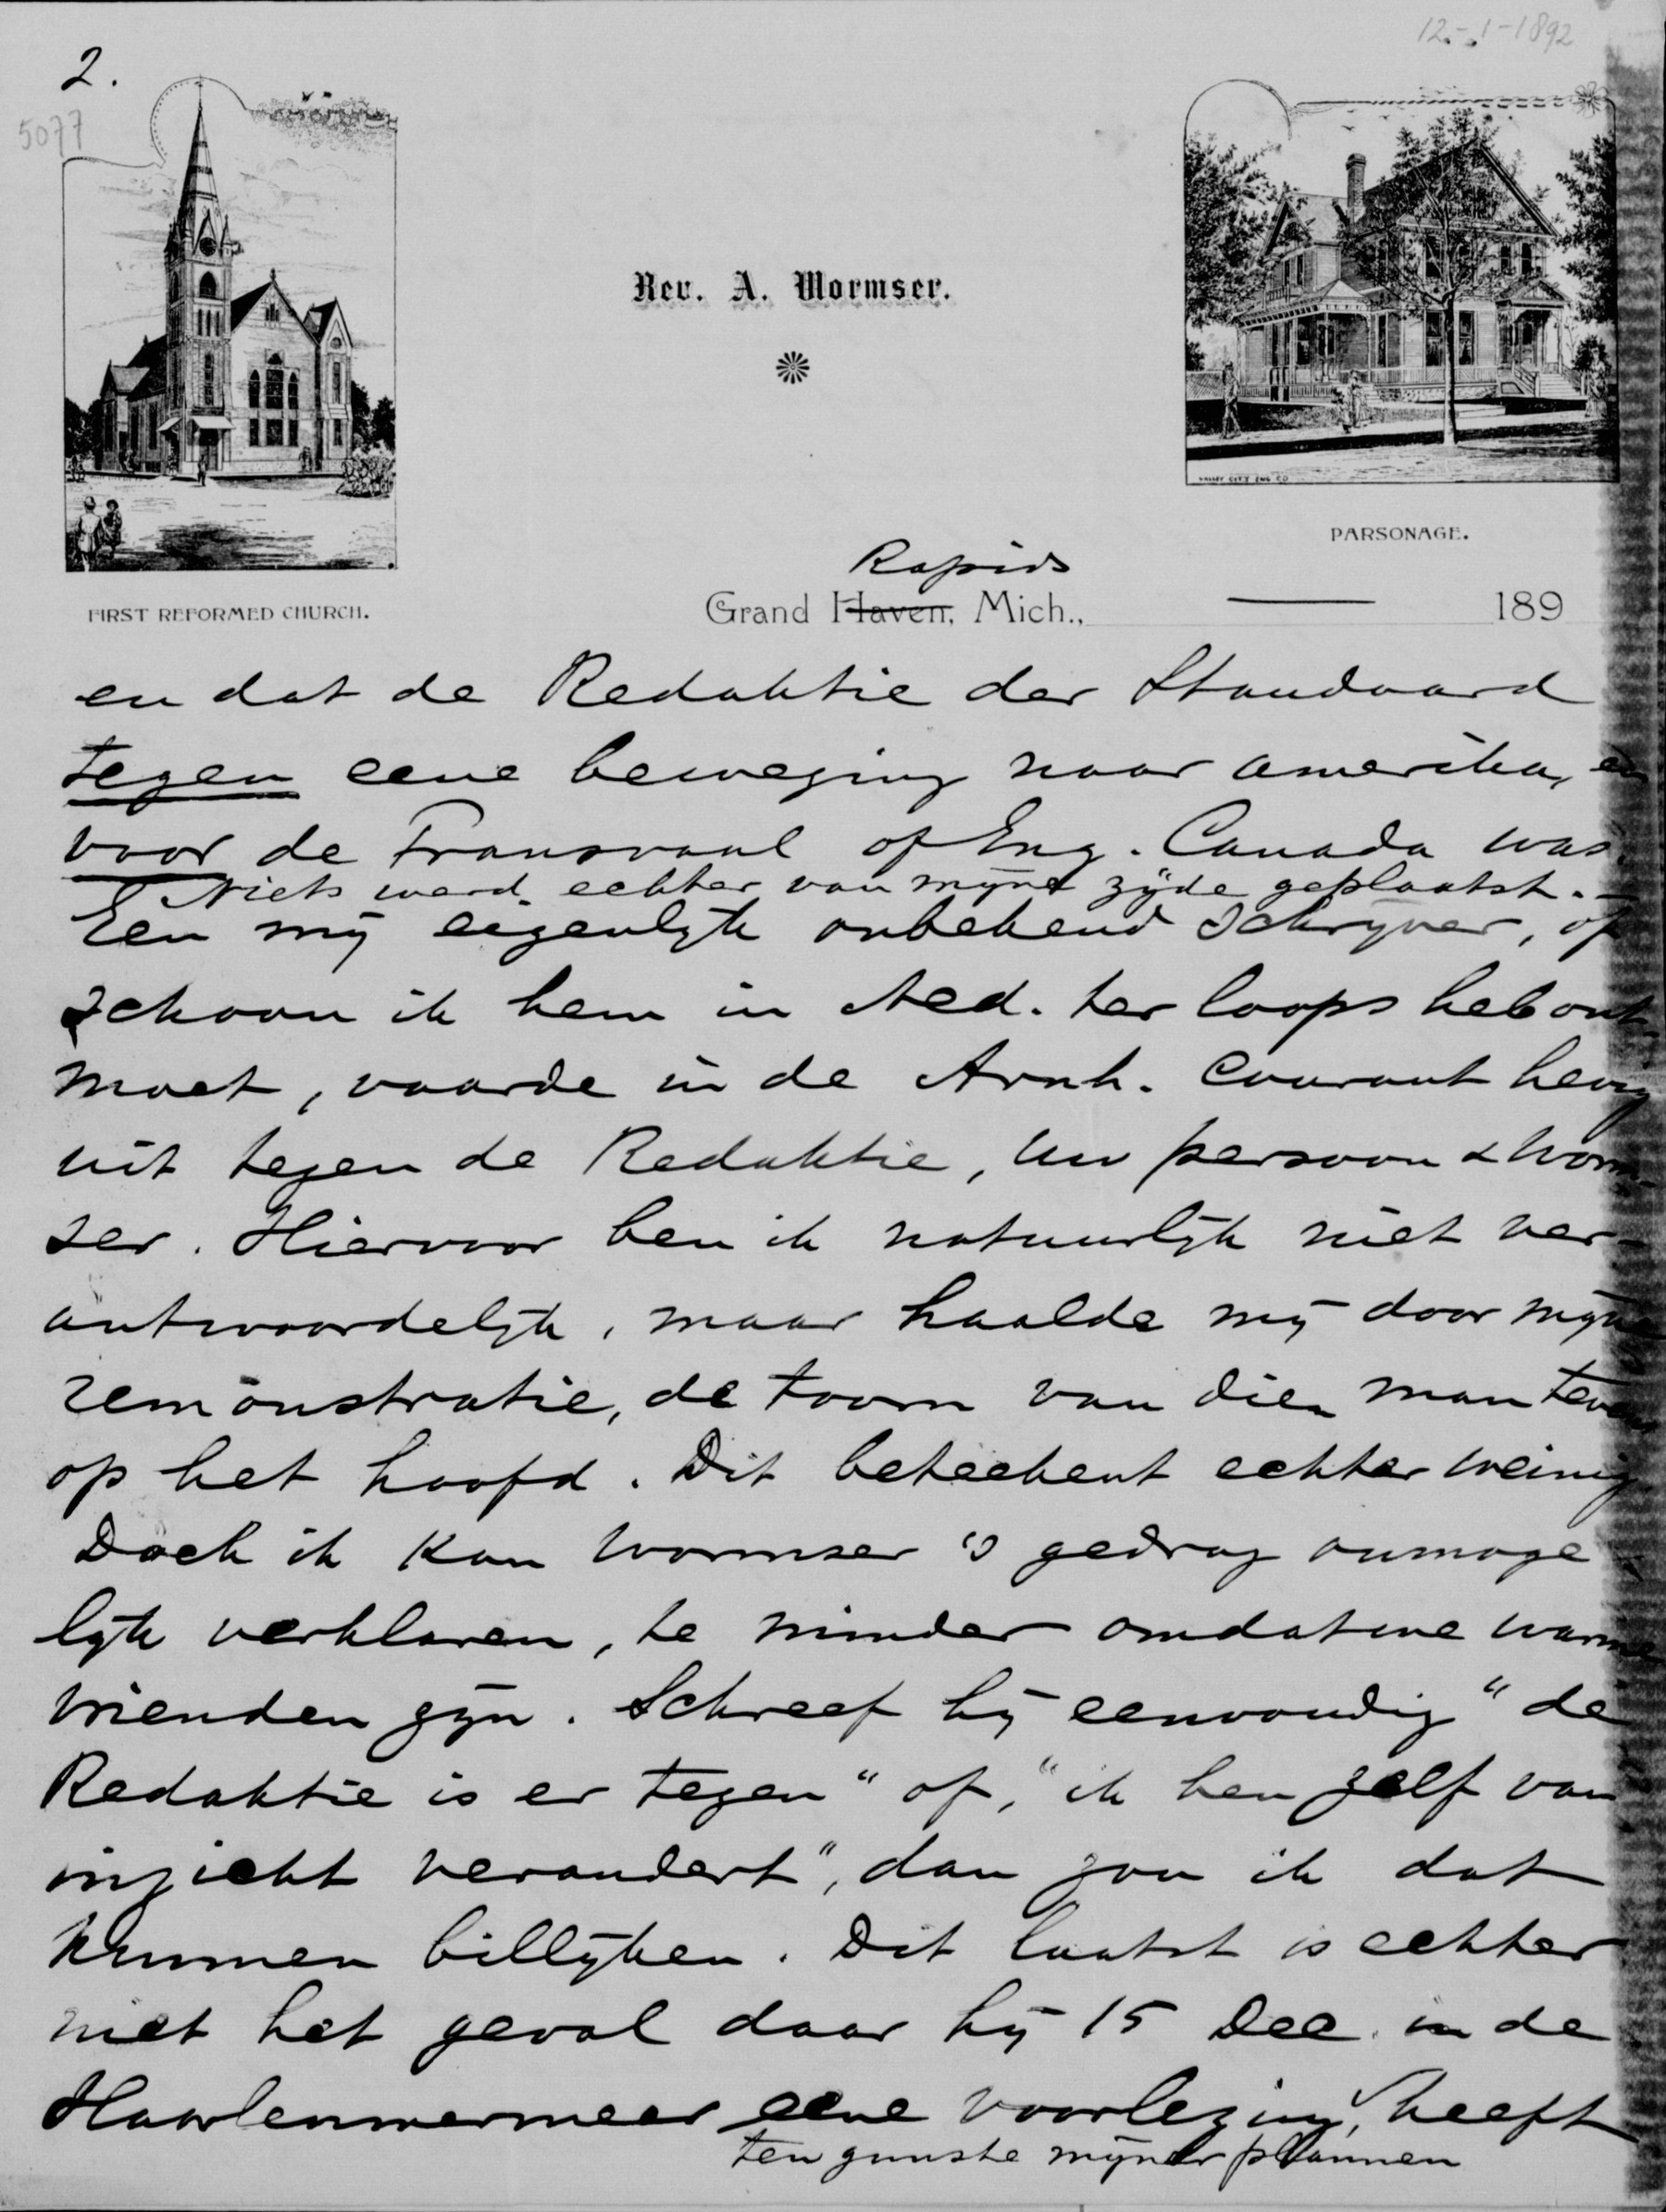 12-1-1892
2.
5077
Rev. A. Wormser.
VALLEY CITY ENG CO
PARSONAGE.
FIRST REFORMED CHURCH.
Rapids
Grand Haven, Mich., 189
en dat de Redaktie der Standaard
tegen eene beweging naar Amerika, en
voor de Transvaal of Eng. Canada was.
Niets werd echter van mijne zijde geplaatst.
Een mij eigenlijk onbekend schrijver, of
schoon ik hem in Ned. ter loops heb ont-
moet, vaarde in de Arnh. Courant hevig
uit tegen de Redaktie, uw persoon & Worm-
ser. Hiervoor ben ik natuurlijk niet ver-
antwoordelijk, maar haalde mij door mijne
remonstratie, de toorn van dien man tevens
op het hoofd. Dit beteekent echter weinig
Doch ik kan Wormser's gedrag onmoge-
lijk verklaren, te minder omdat we warme
vrienden zijn. Schreef hij eenvoudig "de
Redaktie is er tegen" of, "ik ben zelf van
inzicht verandert", dan zou ik dat
kunnen billijken. Dit laatst is echter
niet het geval daar hij 15 Dec. in de
Haarlemmermeer eene voorlezing heeft
ten gunste mijner plannen